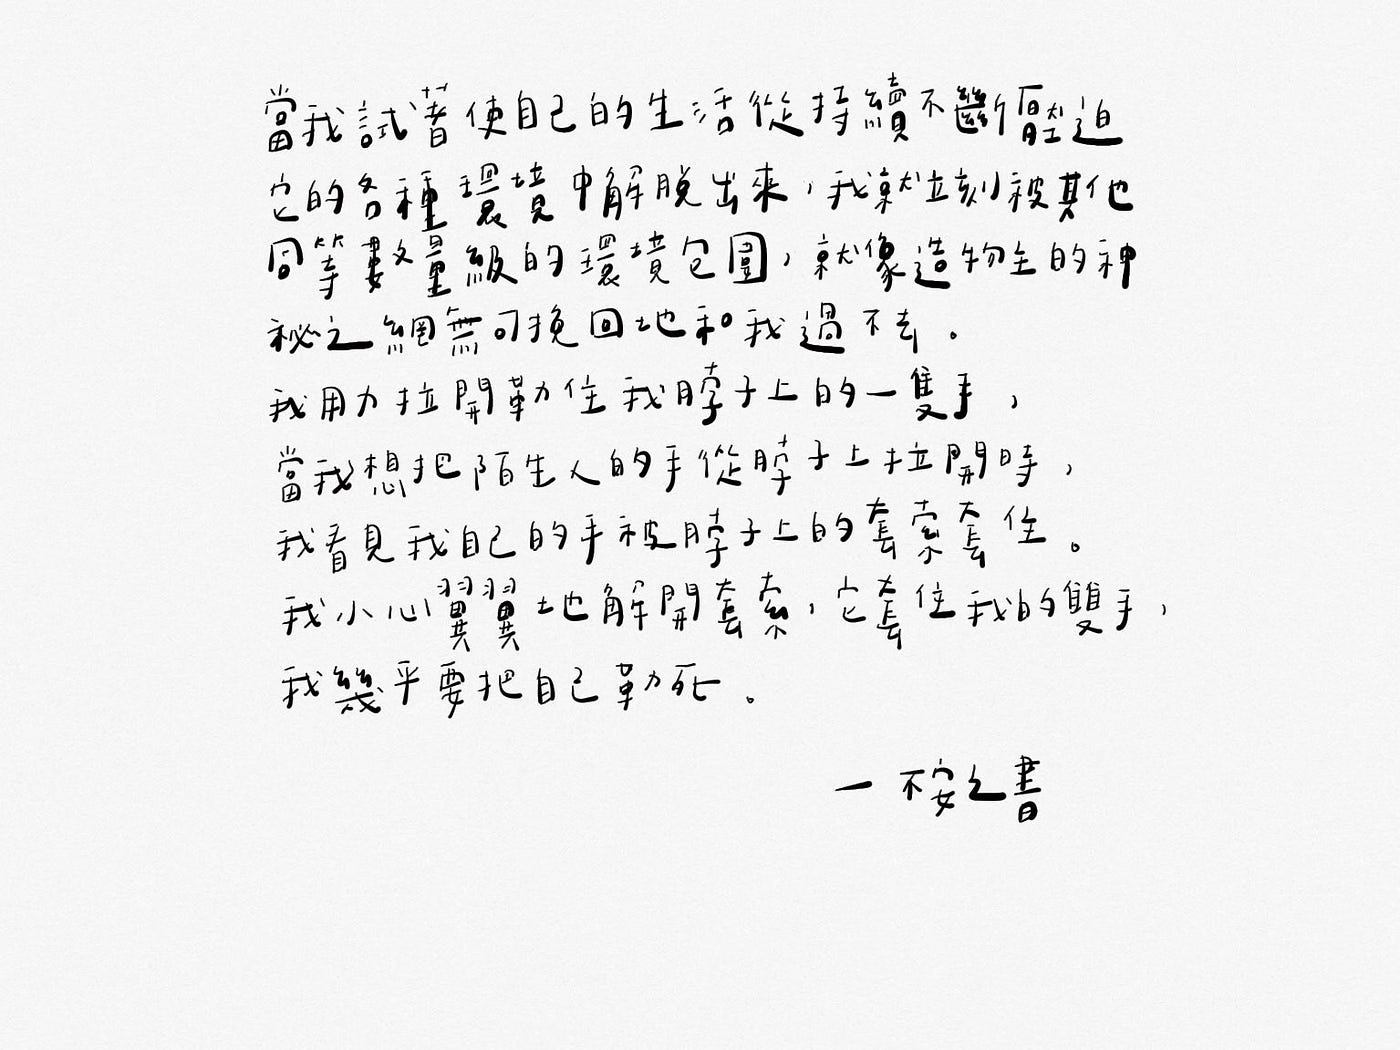 當我試著使自己的生活從持續不斷壓迫
它的各種環境中解脫出來，我就立刻被其他
同等數量級的環境包圍，就像造物主的神
祕之網無可挽回地和我過不去。
我用力拉開勒住我脖子上的一隻手，
當我想把陌生人的手從脖子上拉開時，
我看見我自己的手被脖子上的套索套住。
我小心翼翼地解開套索，它套住我的雙手，
我幾乎要把自己勒死。
— 不安之書